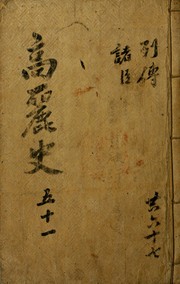 列傳
諸臣
高麗史
五十一
共六十七